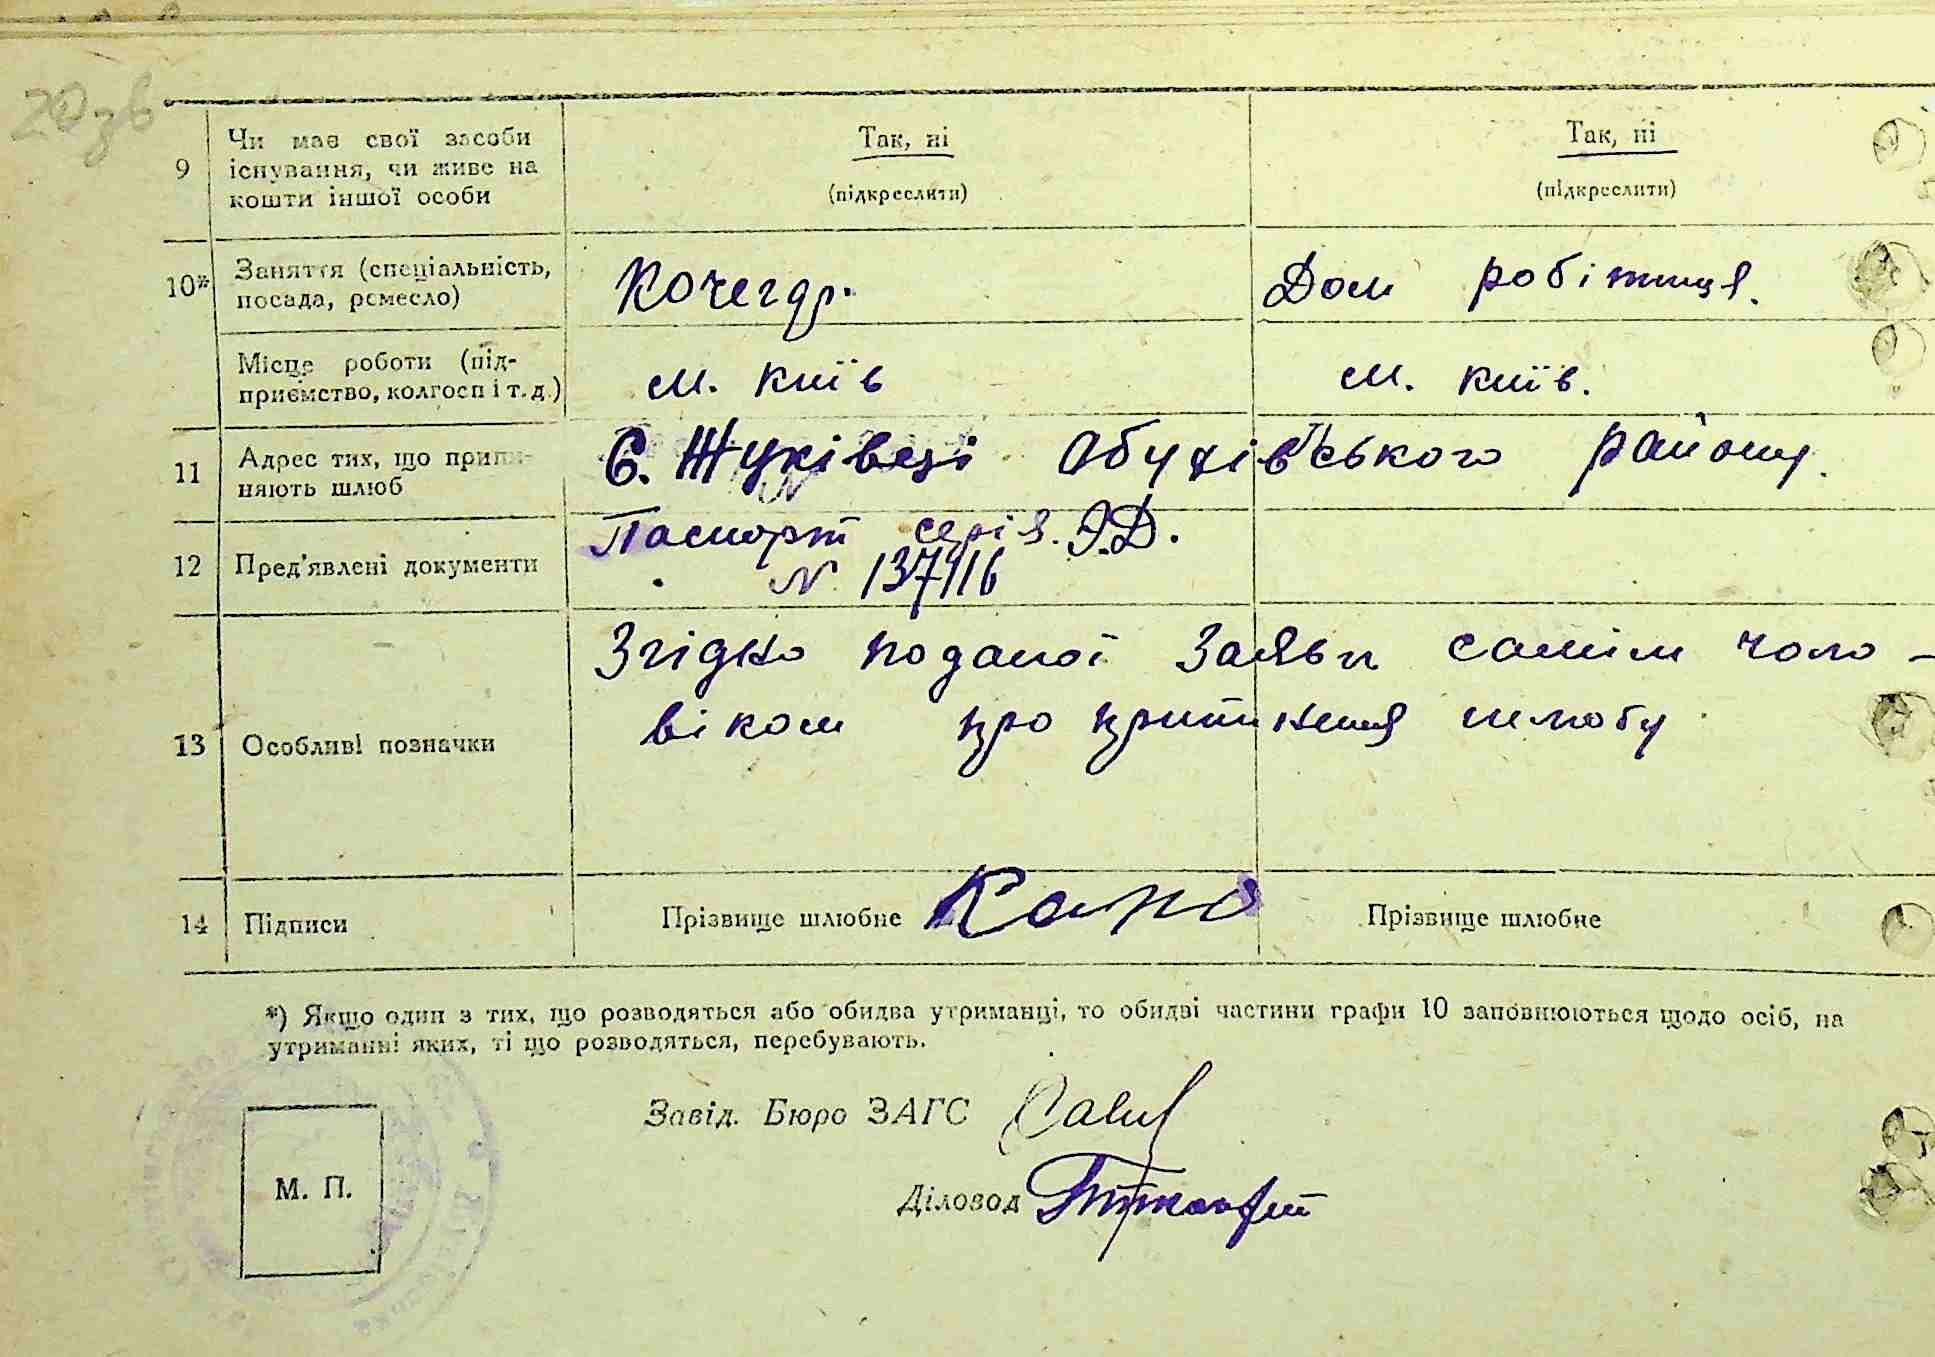 20зв
9 Чи має свої засоби існування, чи живе на кошти іншої особи Так, ні (підкреслити) Так, ні (підкреслити)
10* Заняття (спеціальність, посада, ремесло) Кочегар. Дом робітниця.
Місце роботи (підприємство, колгосп і т. д.) м. Київ м. Київ.
11 Адрес тих, що припиняють шлюб С. Жуківці Обухівського району.
12 Пред'явлені документи Паспорт серія. Э.Д.
№ 137116
13 Особливі позначки Згідно поданої Заяви самім чоло-
віком про припинення шлюбу
14 Підписи Прізвище шлюбне Прізвище шлюбне
*) Якщо один з тих, що розводяться або обидва утриманці, то обидві частини графи 10 заповнюються щодо осіб, на
утриманні яких, ті що розводяться, перебувають.
Завід. Бюро ЗАГС
Діловод
М. П.